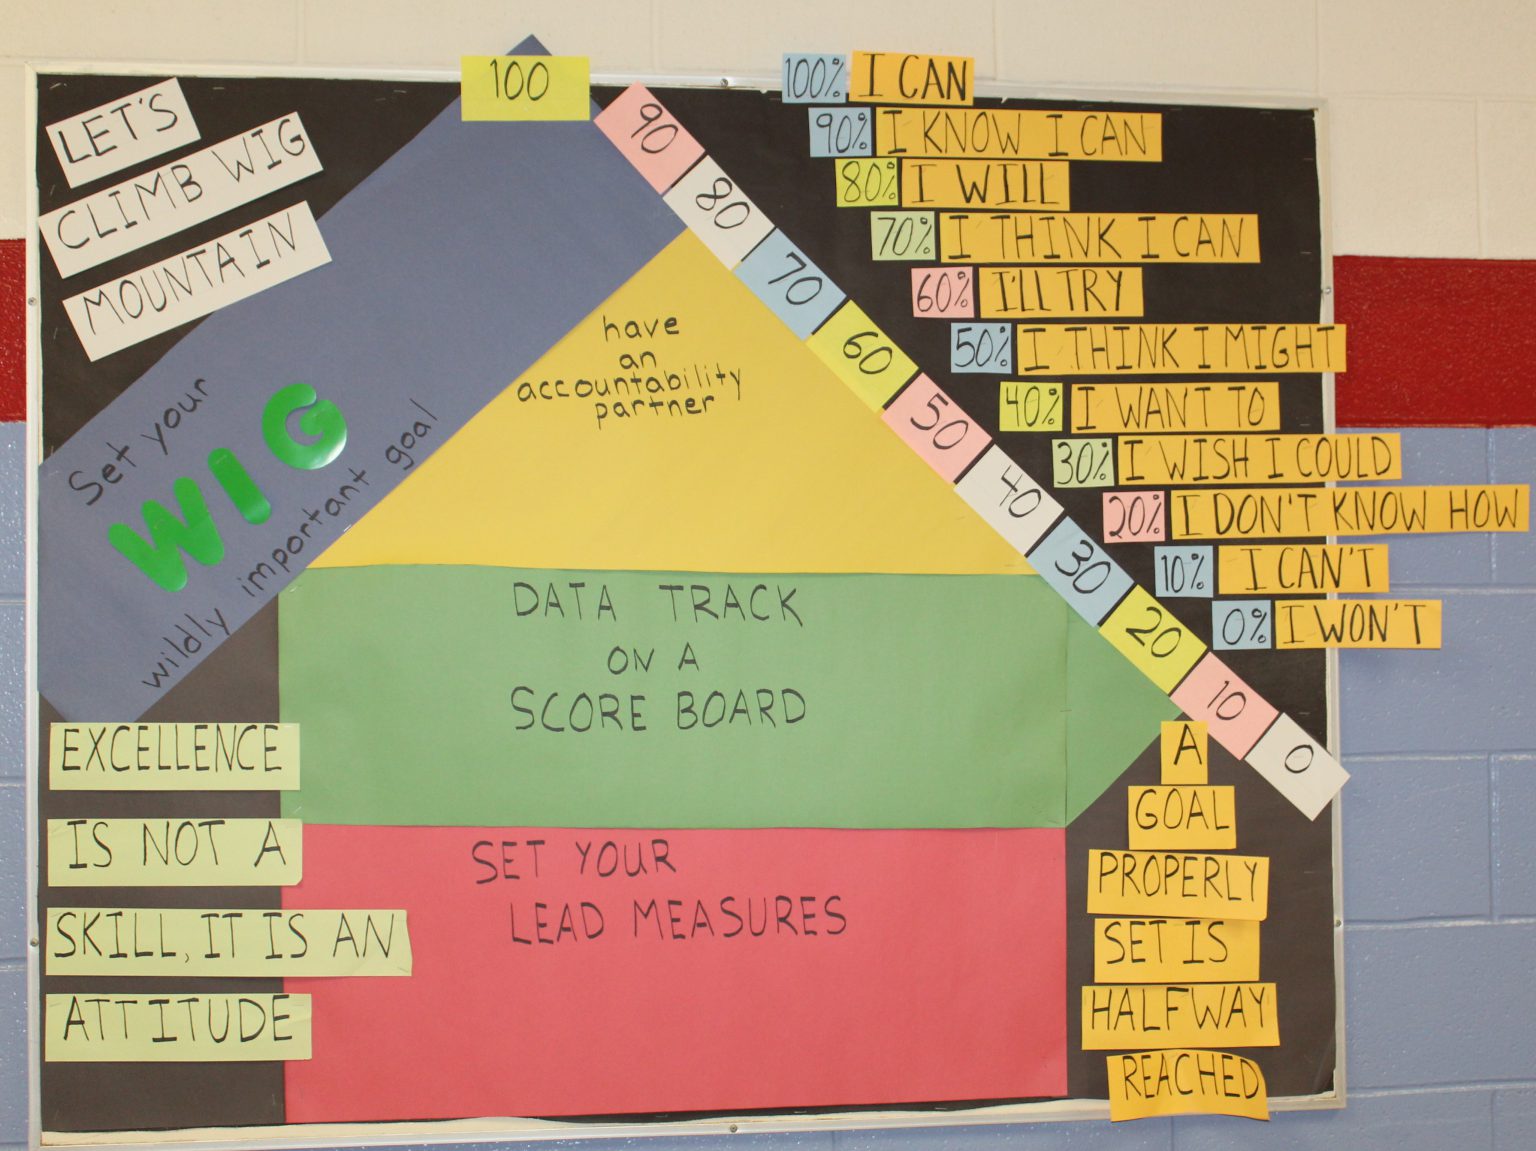 LET'S
CLIMB WIG
MOUNTAIN
Set your
WIG
wildly important goal
100
90
80
70
60
50
40
30
20
10
0
100% I CAN
90% I KNOW I CAN
80% I WILL
70% I THINK I CAN
60% I'LL TRY
50% I THINK I MIGHT
40% I WANT TO
30% I WISH I COULD
20% I DON'T KNOW HOW
10% I CAN'T
0% I WON'T
have
an
accountability
partner
DATA TRACK
ON A
SCORE BOARD
SET YOUR
LEAD MEASURES
EXCELLENCE
IS NOT A
SKILL, IT IS AN
ATTITUDE
A
GOAL
PROPERLY
SET IS
HALFWAY
REACHED